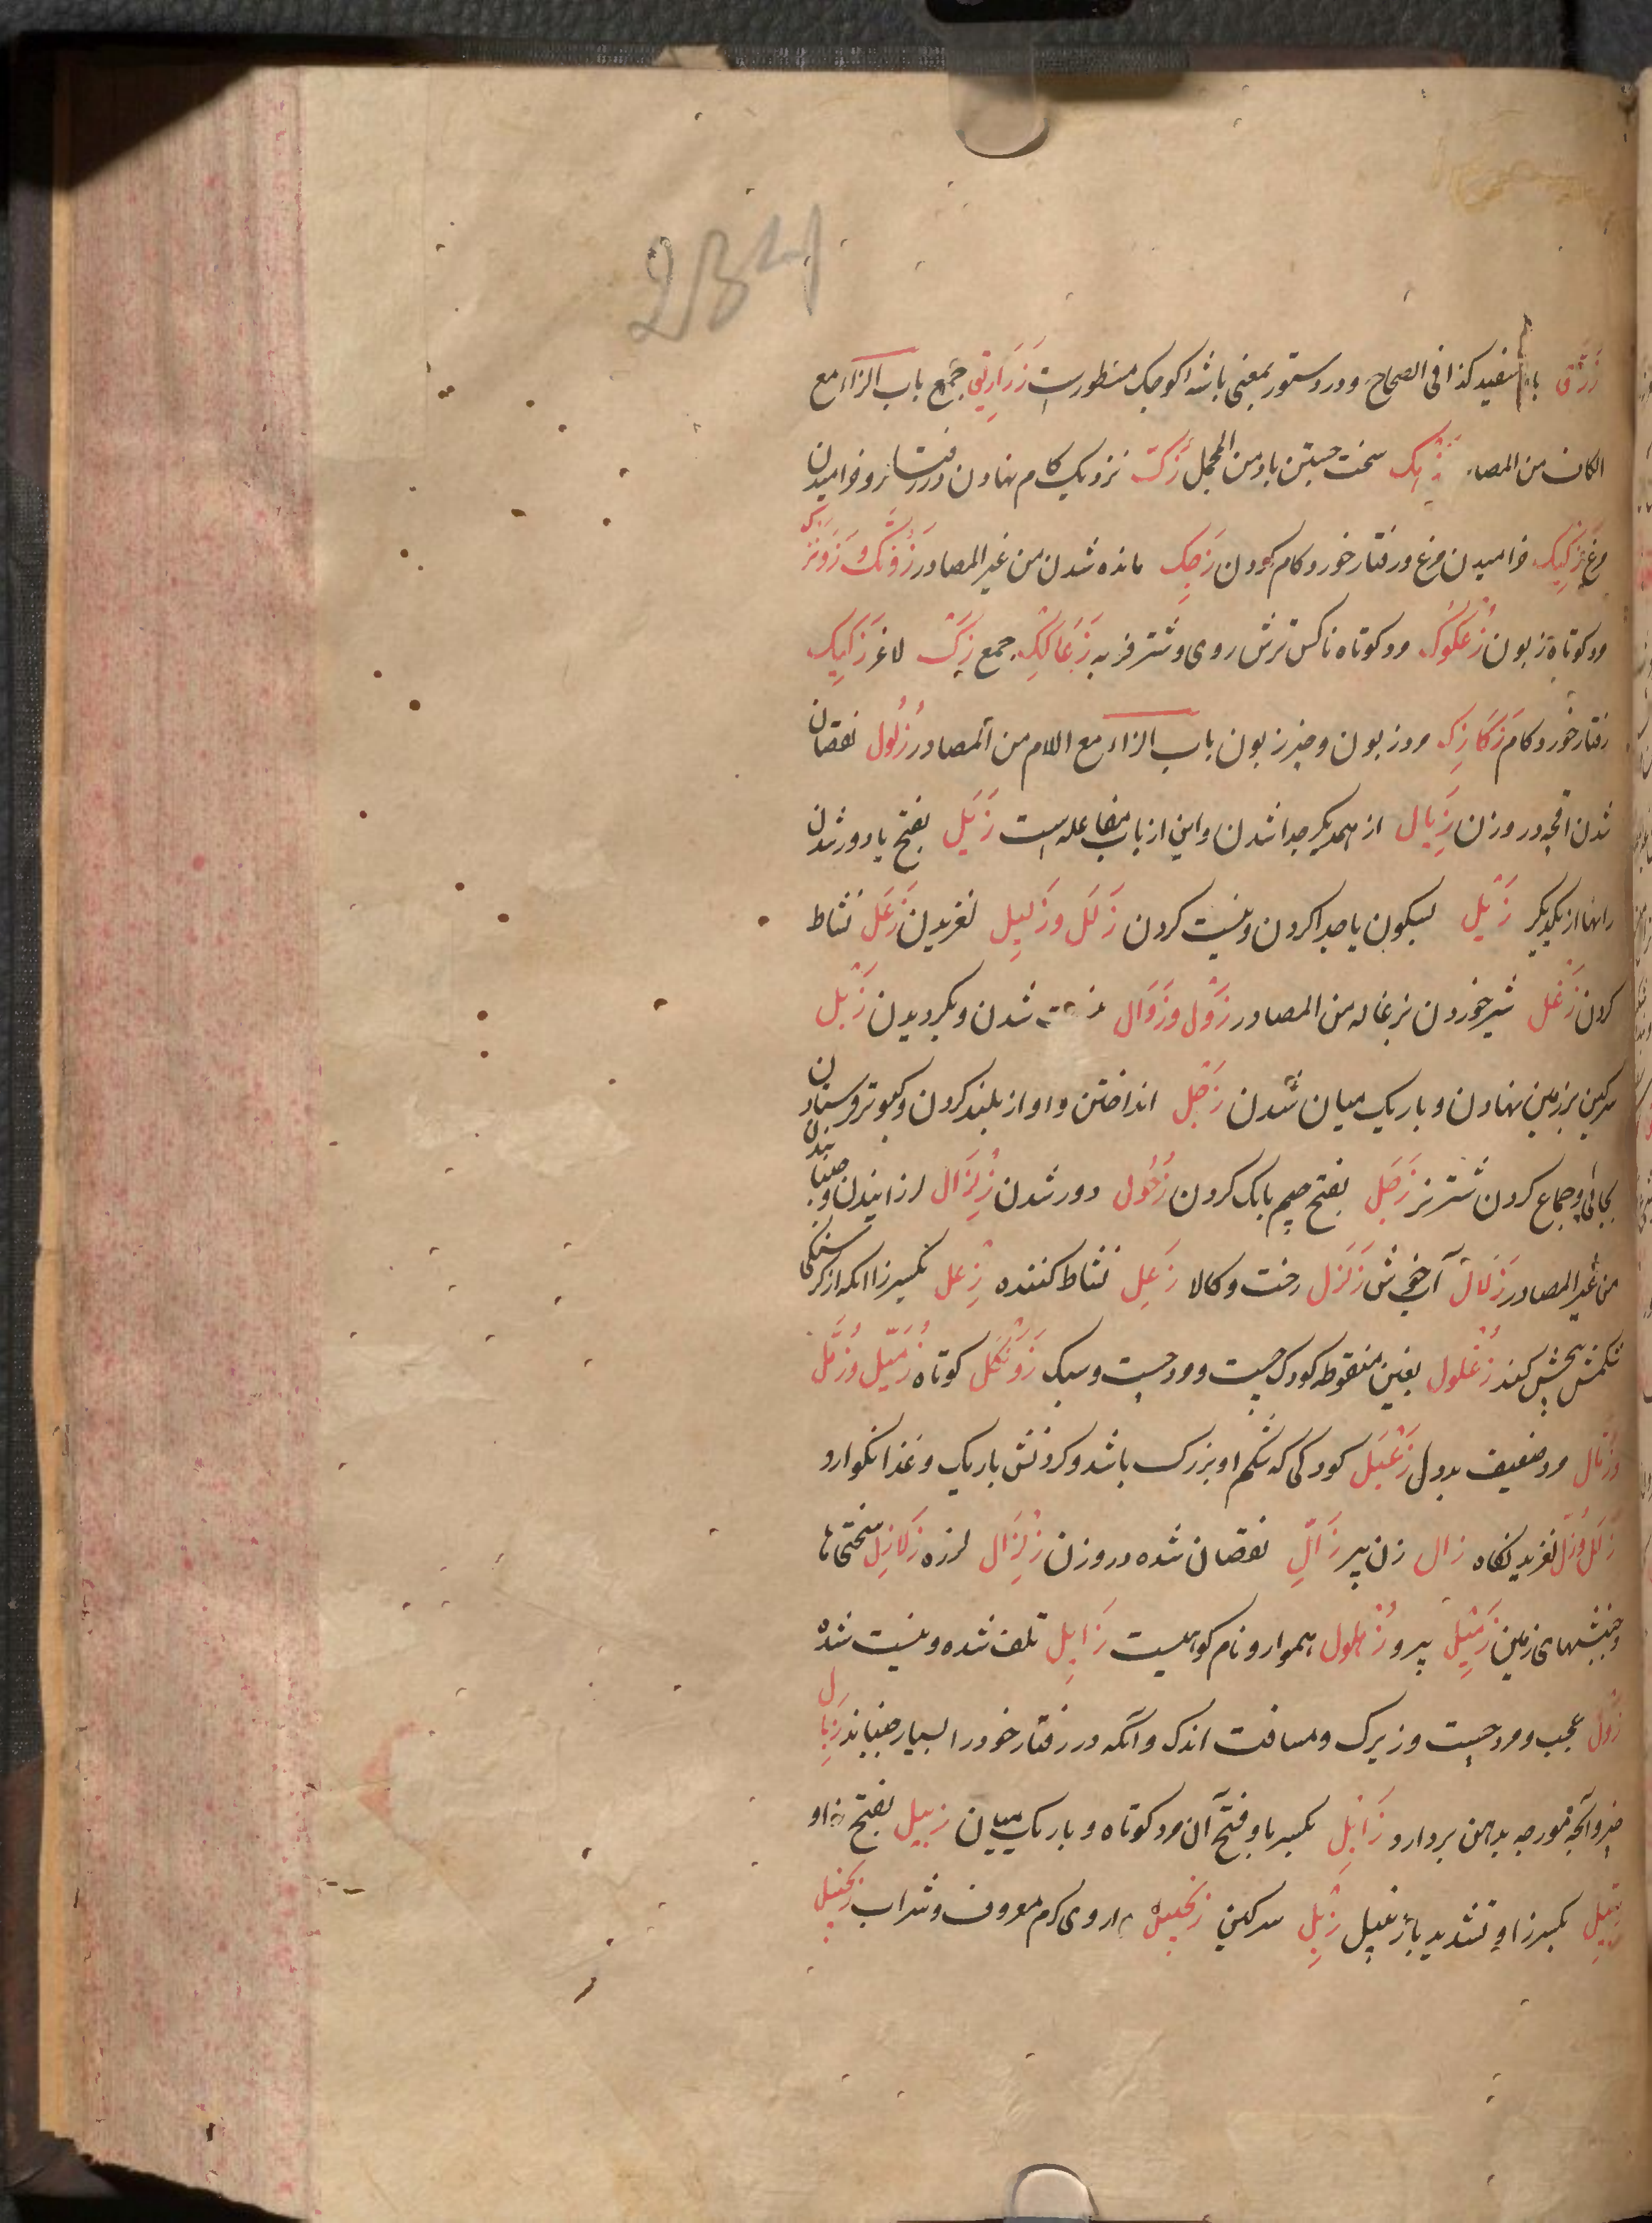 234
زُرَّق باز سفید کذا فی الصحاح و در دستور بمعنی باشه کوچک مسطورست زَرَارِیق جمع باب الزاء مع
الکاف من المصادر سخت جستن باد من المجمل زَکّ نزدیک کام نهادن در رفتار و خرامیدن
مرغ زَکِیک خرامیدن مرغ و رفتار خورد کام کردن زَحِک مانده شدن من غیر المصادر زَوَنَّک و زَوَنْزَک
مرد کوتاه زبون زُعْکُوک مرد کوتاه ناکس ترش روی و شتر فربه جمع زِکّ لاغر زَکِیک
رفتار خورد کام مرد زبون و چیز زبون باب الزاء مع اللام من المصادر زُلُول نقصان
شدن آنچه در وزن زِیَال از همدیگر جدا شدن و این از باب مفاعله است زَیَل بفتح یا دور شدن
رانها از یکدیگر زَیْل بسکون یا جدا کردن و نیست کردن زَلَل و زَلِیل لغزیدن زَعَل نشاط
کردن زَغْل شیر خوردن بزغاله من المصادر زَوْل و زَوَال شدن و بگردیدن زَبْل
سرکین بزمین نهادن و باریک میان شدن زَجْل انداختن و آواز بلند کردن و کبوتر فرستادن
بجائی و جماع کردن شتر نر زَجَل بفتح جیم بانک کردن زُحُول دور شدن زِلْزَال لرزانیدن و جنبانیدن
من غیر المصادر زُلَال آب خوش زَلَزِل رخت و کالا زَعِل نشاط کننده زِعْل بکسر زا آنکه از کرسنکی
شکمش پیچش کند زُغْلُول بغین منقوطه کودک چست و مرد چست و سبک زَوَنْکَل کوتاه زُمَّیْل و زُمَّل
و زُمَّال مرد ضعیف بددل زَعْبَل کودکی که شکم او بزرک باشد و کردنش باریک و غذا نکوارد
زَلَل و زَلّ لغزیدنکاه زال زن پیر زَالّ نقصان شده در وزن زِلْزَال لرزه زَلَازِل سختی ها
و جنبشهای زمین زَمِیل پیرو زُهْلُول هموار و نام کوهیست زَایِل تلف شده و نیست شده
زَوْل عجب و مرد چست و زیرک و مسافت اندک و آنکه در رفتار خود را بسیار جنباند زِبَال
چیز و آنچه مورچه بدهن بردارد زَابِل بکسر با و فتح آن مرد کوتاه و باریک میان زبیل بفتح زا و
زنبیل بکسر زا و تشدید با زنبیل زِبْل سرکین زنجبیل داروی کرم معروف و شراب زنجبیل